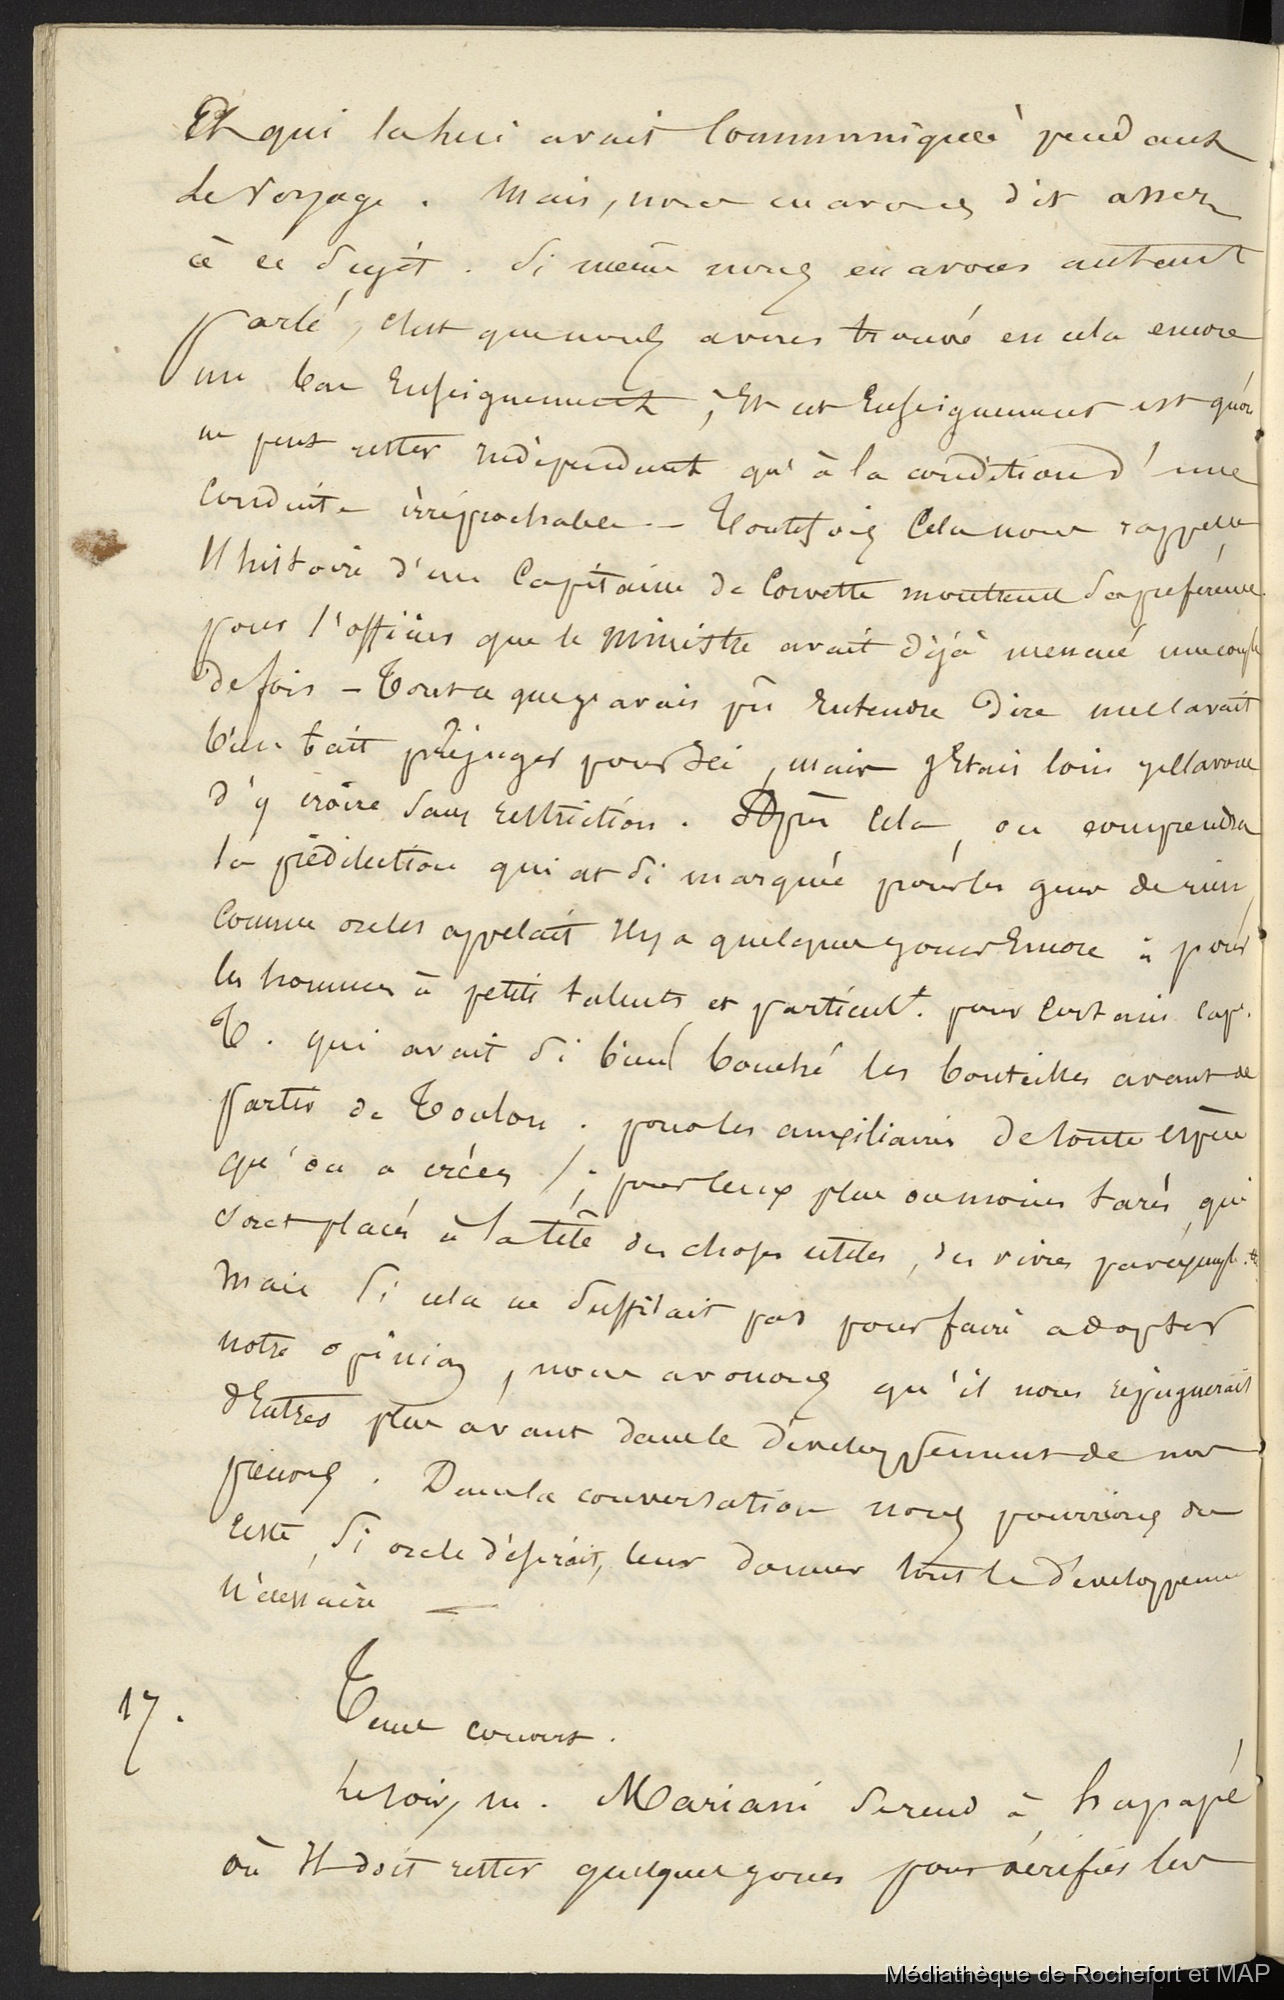 Et qui la lui avait communiquée pendant
le voyage. Mais, nous en avons dit assez
à ce sujet. Si même nous en avons autant
parlé, c'est que nous avons trouvé en cela encore
un bon Enseignement, Et cet Enseignement est qu'on
ne peut rester indépendant qu'à la condition d'une
conduite irréprochable — Toutefois Cela nous rappelle
l'histoire d'un Capitaine de Corvette montrant sa préférence
pour l'officier que le Ministre avait déjà menacé une couple
de fois — Tout ce que j'avais pû Entendre dire me l'avait
bien fait préjuger pour , mais j'Etais loin je l'avoue
d'y croire sans restriction. Après Cela, on comprendra
la prédilection qui est si marquée pour les gens de rien,
comme on les appelait il y a quelques jours Encore ; pour
les hommes à petits talents et particult. pour certain cape.
T. qui avait si bien bouché les bouteilles avant de
partir de Toulon. pour les auxiliaires de toute espèce
qu'on a créés ; pour ceux plus ou moins tarés, qui
sont placés à la tête des choses utiles, des vivres par exemple.
Mais si cela ne suffisait pas pour faire adopter
notre opinion, nous avouons qu'il nous répugnerait
d'Entrer plus avant dans le développement de nos
pensées. Dans la conversation nous pourrions du
reste, si on le désirait, leur donner tout le développement
nécessaire —
17.
Tems couvert.
Le soir, M. Mariani se rend à hapapé
où Il doit rester quelques jours pour vérifier les
Médiathèque de Rochefort et MAP